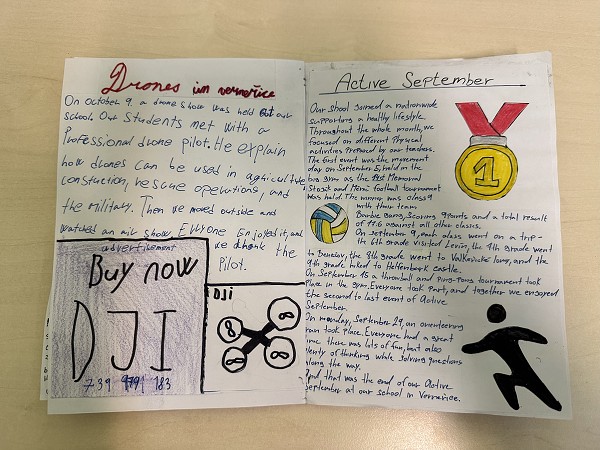 Drones in vernerice
On October 9 a drone show was held at our
school. Our students met with a
Professional drone pilot. He explain
how drones can be used in agriculture,
construction, rescue operations, and
the Military. Then we moved outside and
watched an air show. Everyone enjoyed it, and
we thank the
Pilot.
advertisement
Buy now
DJI
739 183
DJI
8
8
8
8
Active September
Our shool joined a nationwide
supporting a healthy lifestyle.
Throughout the whole month, we
focused on different Physical
activities Prepared by our teachers.
The first event was the movement
day on September 5, held in the
gym as the 1st Memorial
and Football tournament
was held. The winner was class 9
with their team
Barbie Bang, Scoring 9 points and a total result
of 11:6 against all other classes.
On september 9, each class went on a trip-
the 6th grade visited Levin, the 7th grade went
to Benešov, the 8th grade went to long, and the
9th grade hiked to Helfenberk castle.
On September 15 a throwball and Ping-Pong tournament took
Place in the gym. Everyone took part, and together we enjoyed
the second to last event of Active
September.
On monday, September 29, an orienteering
run took place. Everyone had a great
time there was lots of fun, but also
plenty of thinking while solving questions
along the way.
And that was the end of our Active
September at our school in Verneřice.
1